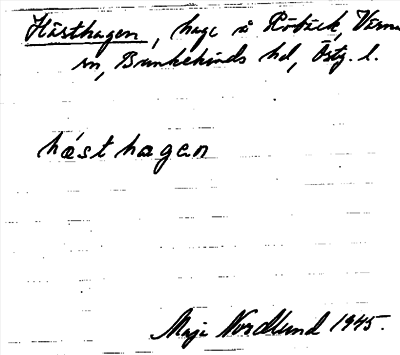 Hästhagen, hage å Röbäck, Värna
sn, Bankekinds hd, Östg. l.
hästhagen
Maja Nordlund 1945.